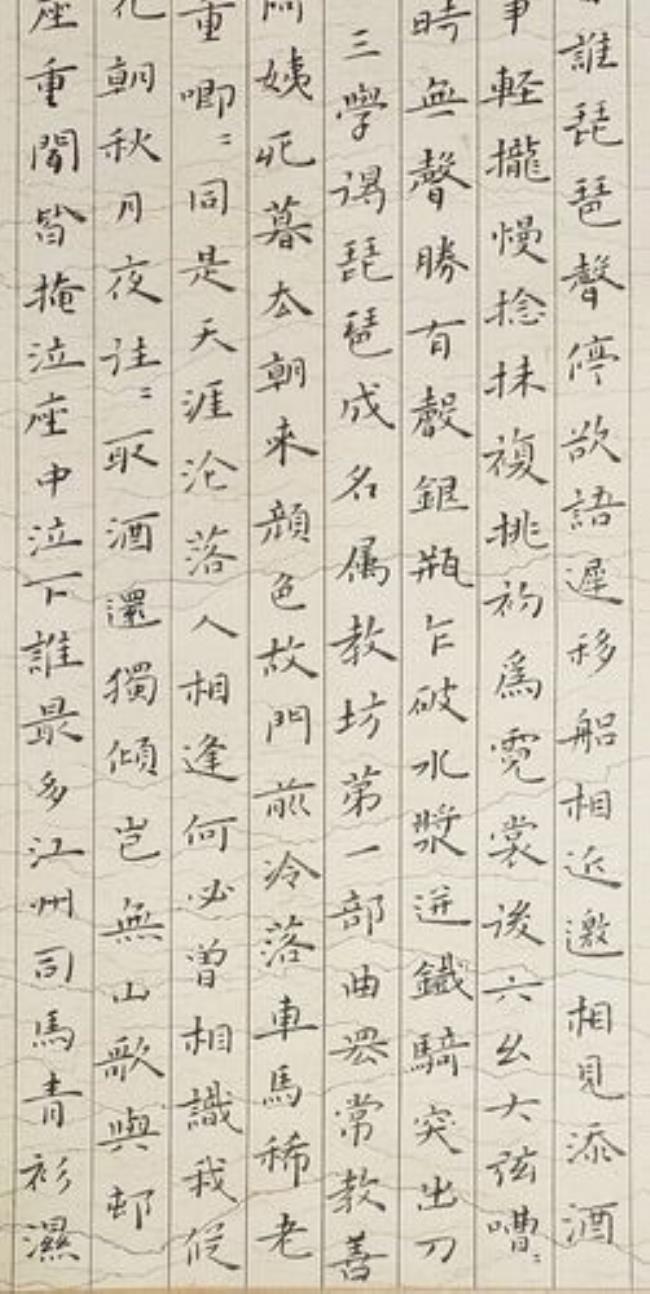 誰琵琶聲停欲語遲移船相近邀相見添酒
事軽攏慢捻抹複挑初爲霓裳後六幺大弦嘈〻
時無聲勝有聲銀瓶乍破水漿迸鐵騎突出刀
三學得琵琶成名属教坊第一部曲罷常教善
阿姨死暮去朝来顔色故門前冷落車馬稀老
重唧〻同是天涯淪落人相逢何必曾相識我從
花朝秋月夜往〻取酒還獨傾豈無山歌與邨
座重聞皆掩泣座中泣下誰最多江州司馬青衫濕